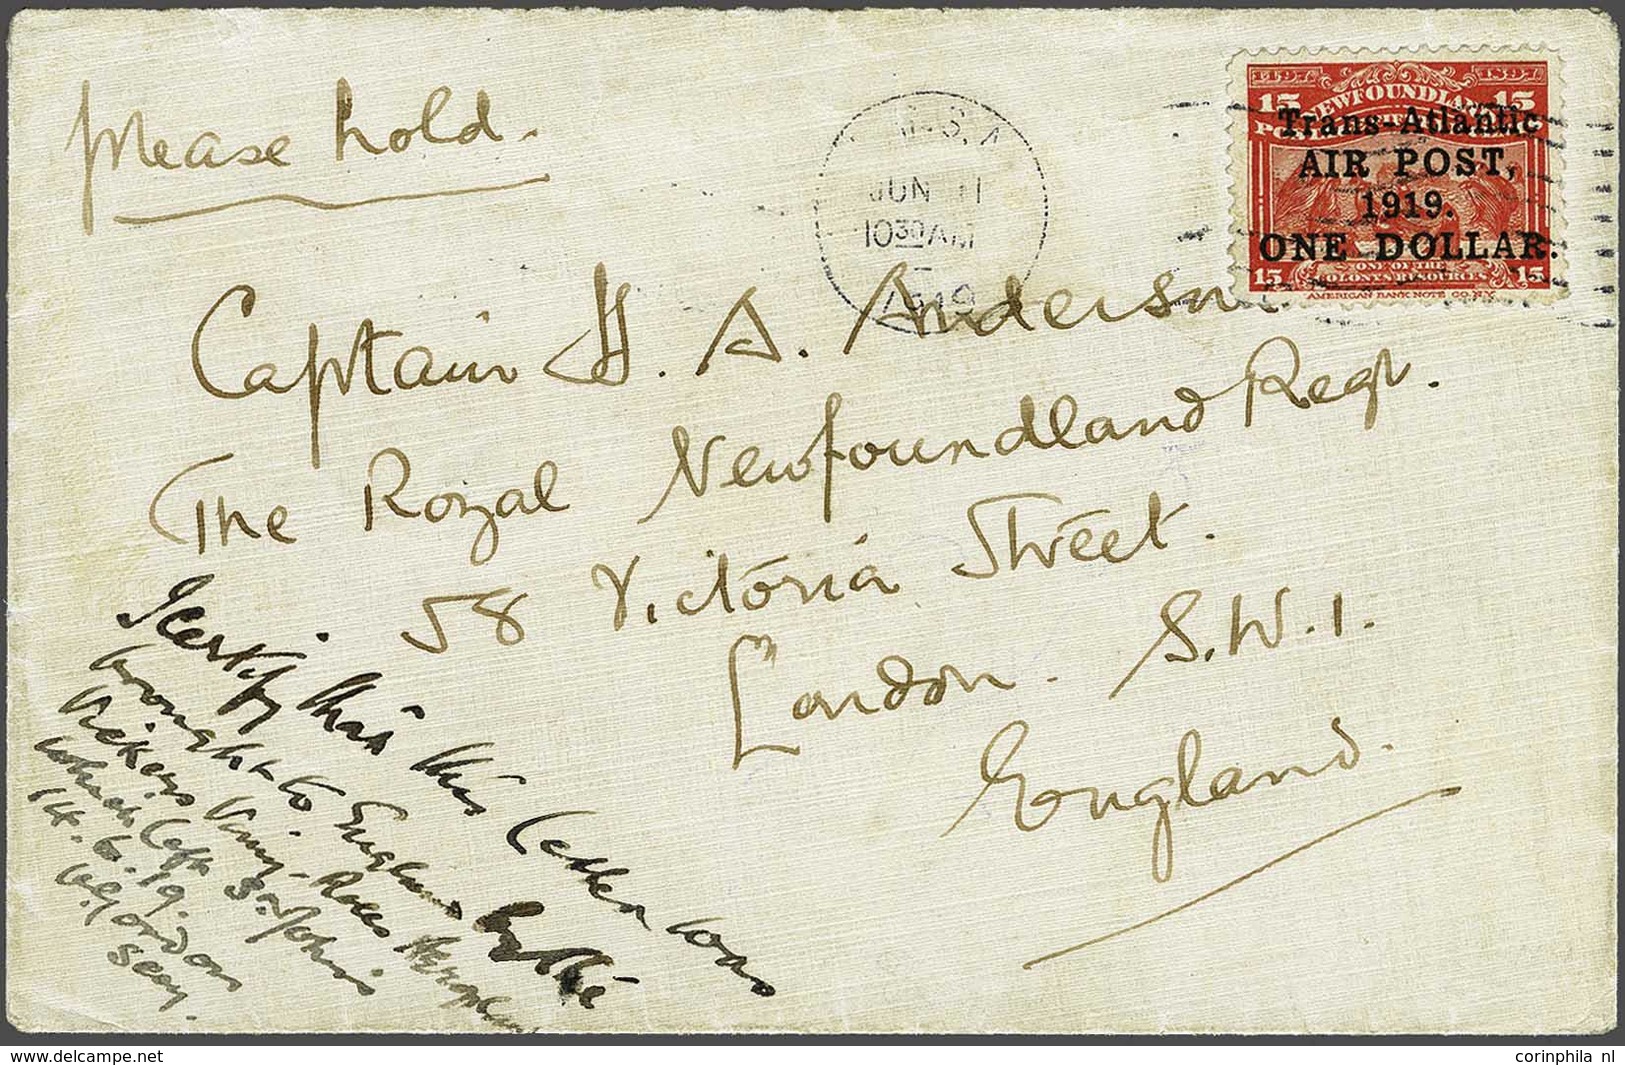 Please hold.
JUN 11
10 30 AM
1919
1497 1897
15 NEWFOUNDLAND 15
Trans-Atlantic
AIR POST,
1919.
ONE DOLLAR.
15 ONE OF THE 15
COLONY'S RESOURCES
AMERICAN BANK NOTE CO. N.Y.
Captain H. A. Anderson
The Royal Newfoundland Regt.
58 Victoria Street.
London. S.W.1.
England.
I certify that this letter was
brought to England by the
Vickers Vimy-Rolls Aeroplane
which left St John's
14.6.19.
Gordon
Secy.
corinphila nl